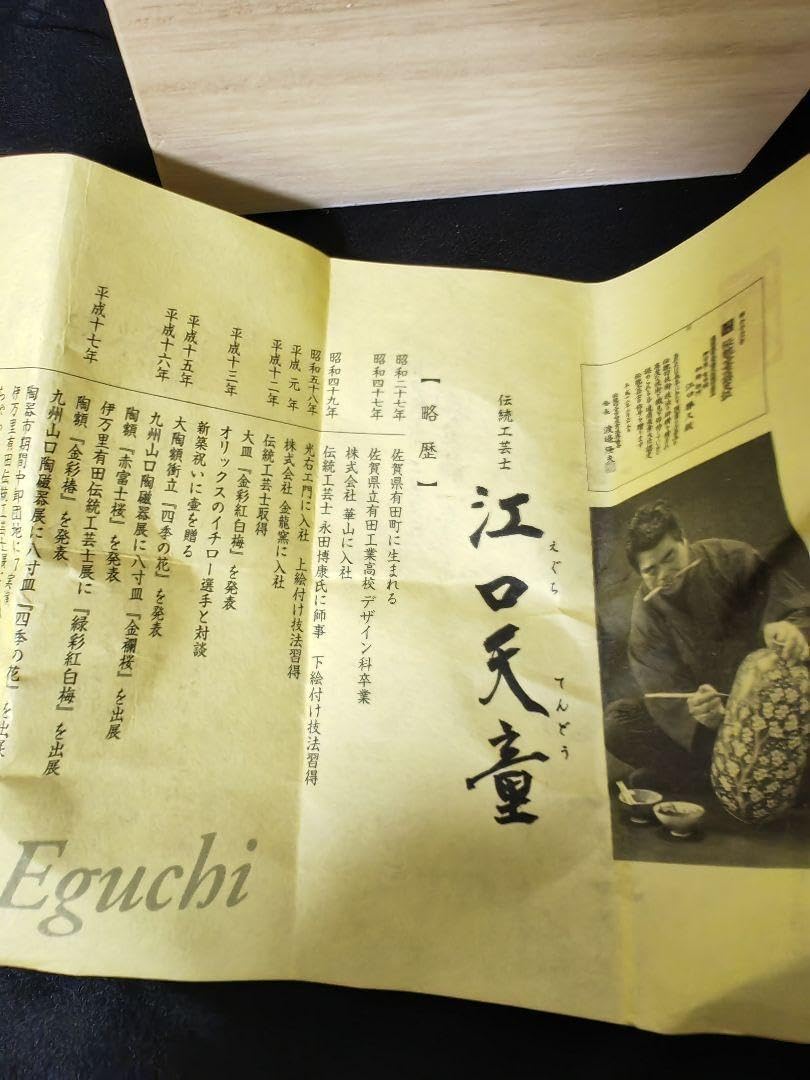 伝統工芸士
江口天童
えぐち
てんどう
【略歴】
昭和二十七年 佐賀県有田町に生まれる
昭和四十七年 佐賀県立有田工業高校 デザイン科卒業
株式会社 華山に入社
昭和四十九年 伝統工芸士 永田博康氏に師事 下絵付け技法習得
昭和五十八年 光右エ門に入社 上絵付け技法習得
平成元年 株式会社 金龍窯に入社
平成十二年 伝統工芸士取得
大皿『金彩紅白梅』を発表
平成十三年 オリックスのイチロー選手と対談
新築祝いに壷を贈る
平成十五年 大陶額衝立『四季の花』を発表
平成十六年 九州山口陶磁器展に八寸皿『金襴桜』を出展
陶額『赤富士桜』を発表
伊万里有田伝統工芸士展に『緑彩紅白梅』を出展
陶額『金彩椿』を発表
平成十七年 九州山口陶磁器展に八寸皿『四季の花』を出展
陶器市期間中卸団地にて実演
Eguchi